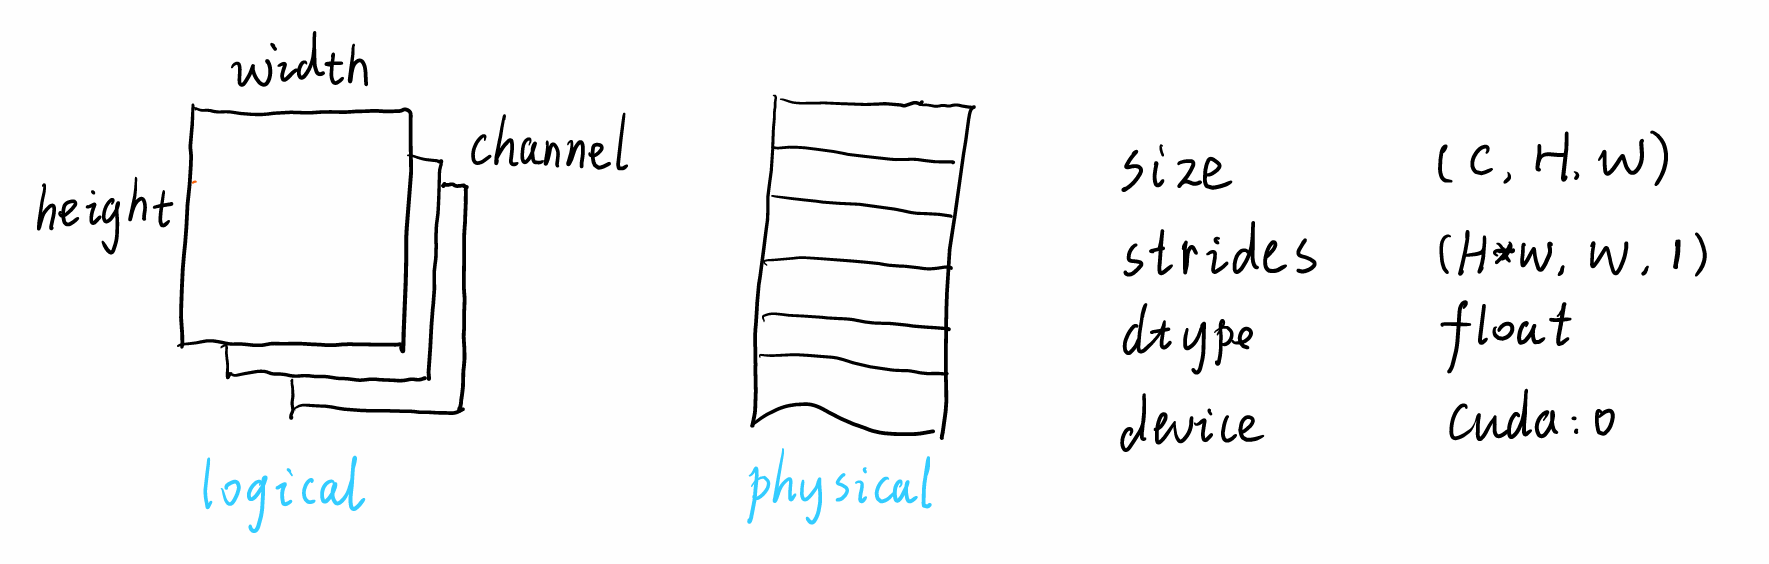 width
channel
height
logical
physical
size (C, H, W)
strides (H*W, W, 1)
dtype float
device cuda:0